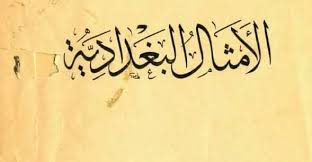 الأمثال البغدادية